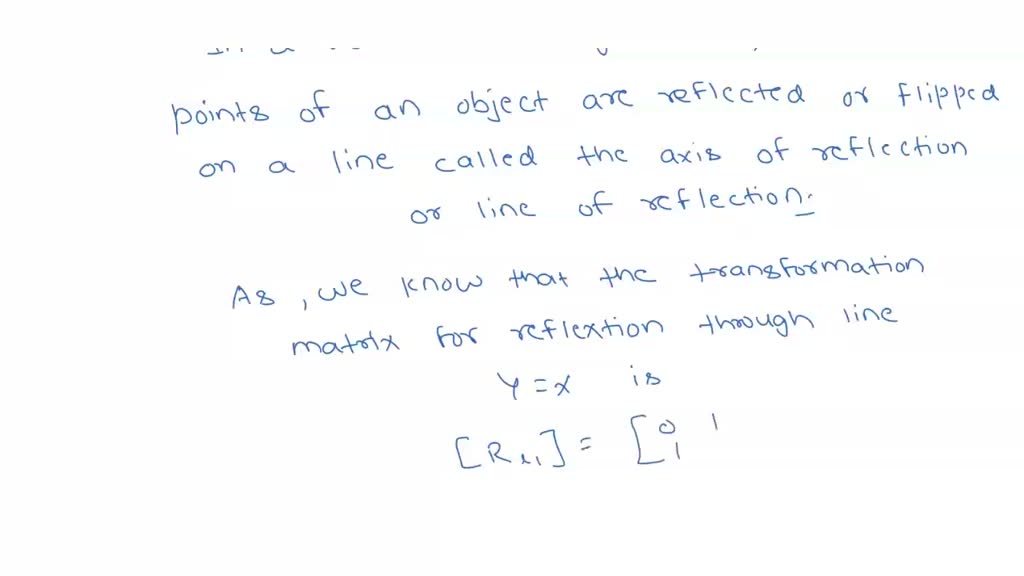 points of an object are reflected or flipped
on a line called the axis of reflection
or line of reflection.
As, we know that the transformation
matrix for reflextion through line
Y = x is
[R x1] = [0 1
1